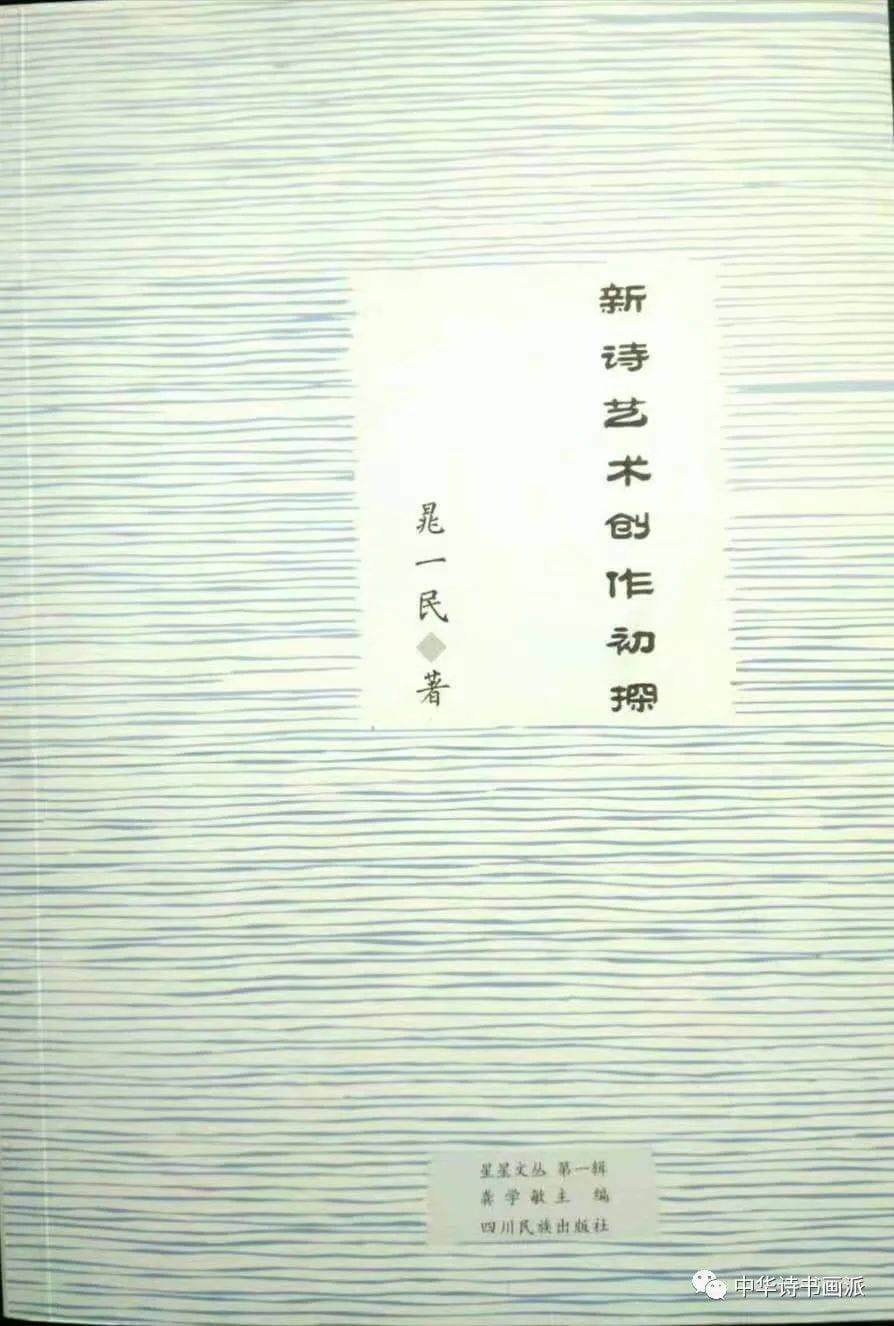 新诗艺术创作初探
晁一民◆著
星星文丛 第一辑
龚学敏主 编
四川民族出版社
中华诗书画派